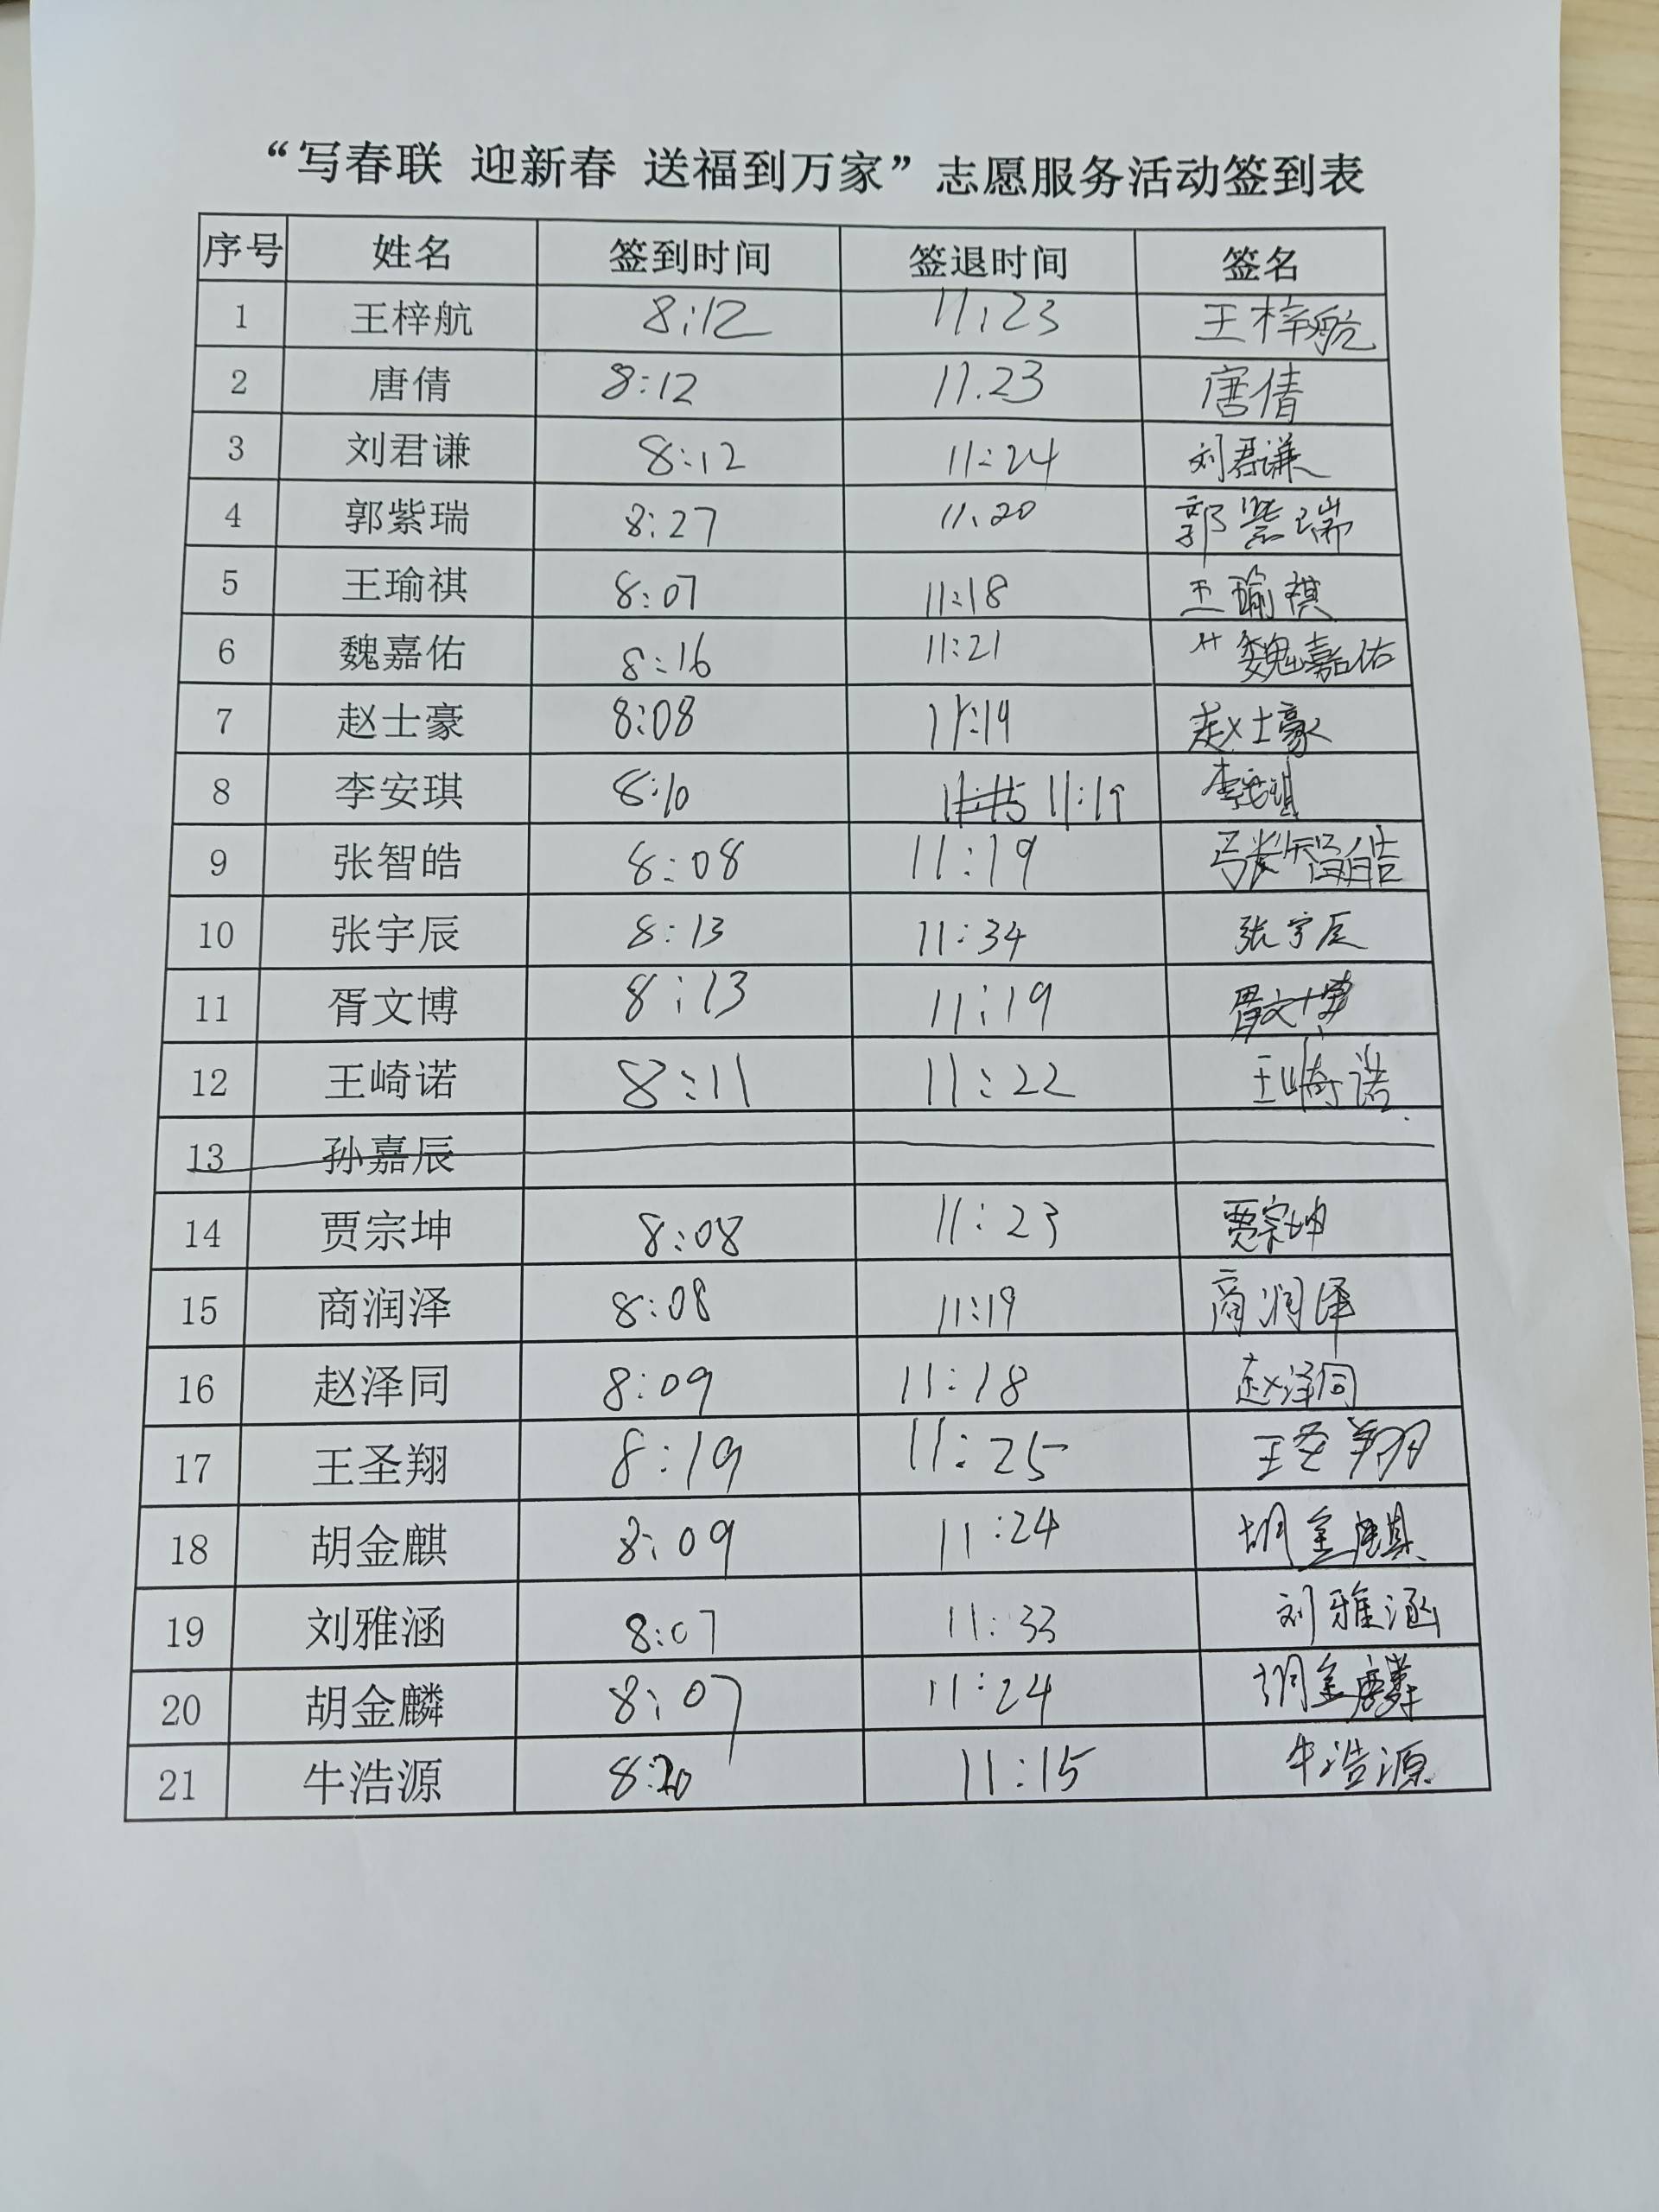 “写春联 迎新春 送福到万家”志愿服务活动签到表
序号 姓名 签到时间 签退时间 签名
1 王梓航 8:12 11:23 王梓航
2 唐倩 8:12 11.23 唐倩
3 刘君谦 8:12 11:24 刘君谦
4 郭紫瑞 8:27 11.20 郭紫瑞
5 王瑜祺 8:07 11:18 王瑜祺
6 魏嘉佑 8:16 11:21 魏嘉佑
7 赵士豪 8:08 11:19 赵士豪
8 李安琪 8:10 11:19 李安琪
9 张智皓 8:08 11:19 张智皓
10 张宇辰 8:13 11:34 张宇辰
11 胥文博 8:13 11:19 胥文博
12 王崎诺 8:11 11:22 王崎诺
13 孙嘉辰
14 贾宗坤 8:08 11:23 贾宗坤
15 商润泽 8:08 11:19 商润泽
16 赵泽同 8:09 11:18 赵泽同
17 王圣翔 8:19 11:25 王圣翔
18 胡金麒 8:09 11:24 胡金麒
19 刘雅涵 8:07 11:33 刘雅涵
20 胡金麟 8:07 11:24 胡金麟
21 牛浩源 8:20 11:15 牛浩源